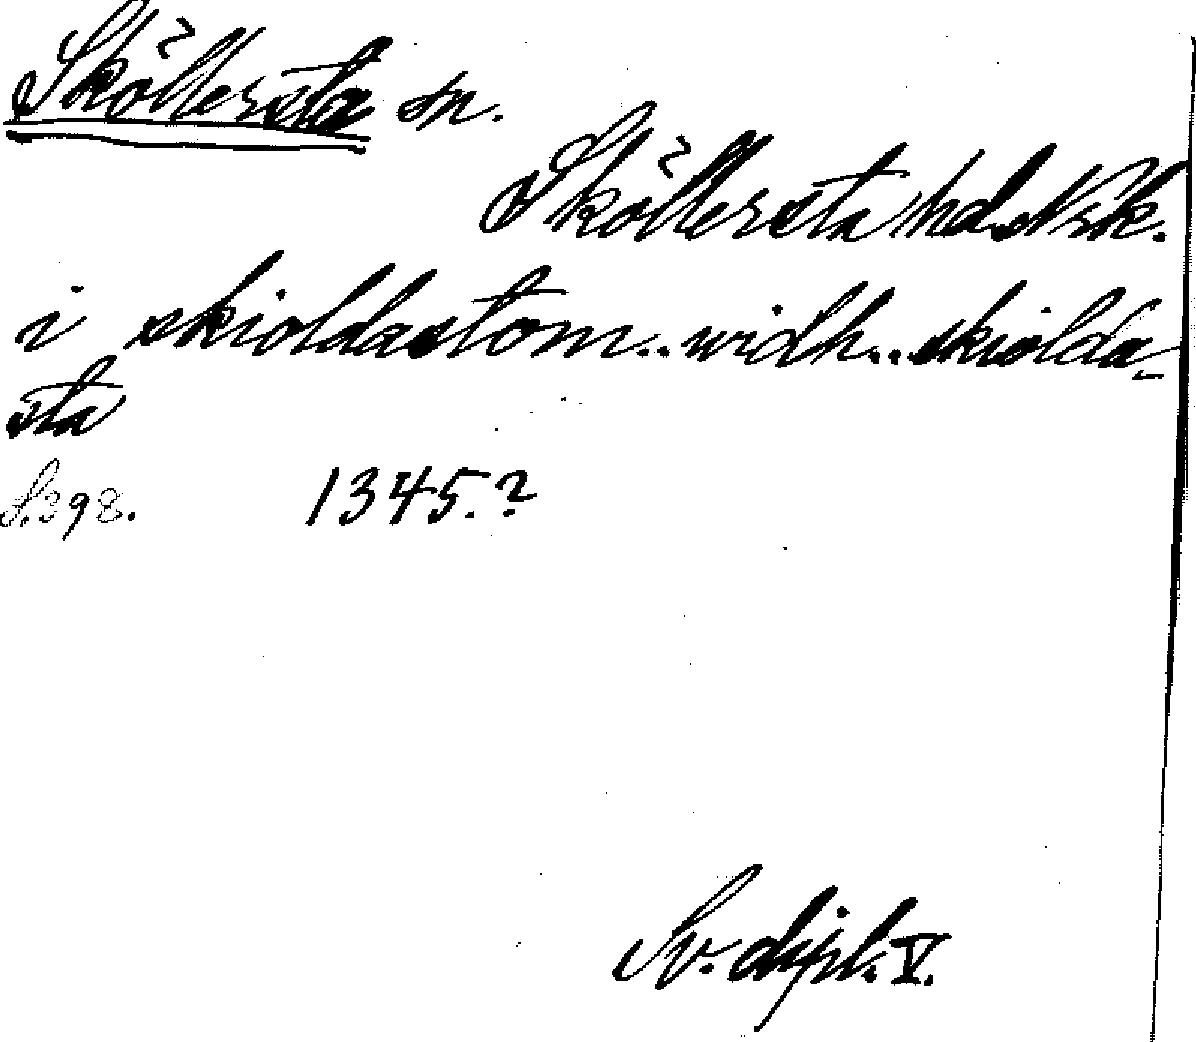 Sköllersta sn.
Sköllersta hd. Nrk.
i skioldastom.. widh.. skiolda-
sta
S. 398. 1345.?
Sv. dipl. V.